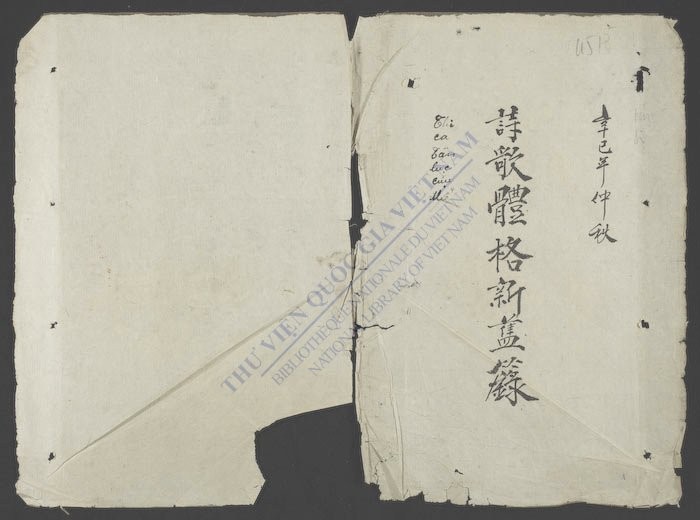 辛巳年仲秋
詩歌體格新舊籙
Thi
ca
tân
cựu
THƯ VIỆN QUỐC GIA VIỆT NAM
BIBLIOTHÈQUE NATIONALE DU VIETNAM
NATIONAL LIBRARY OF VIETNAM